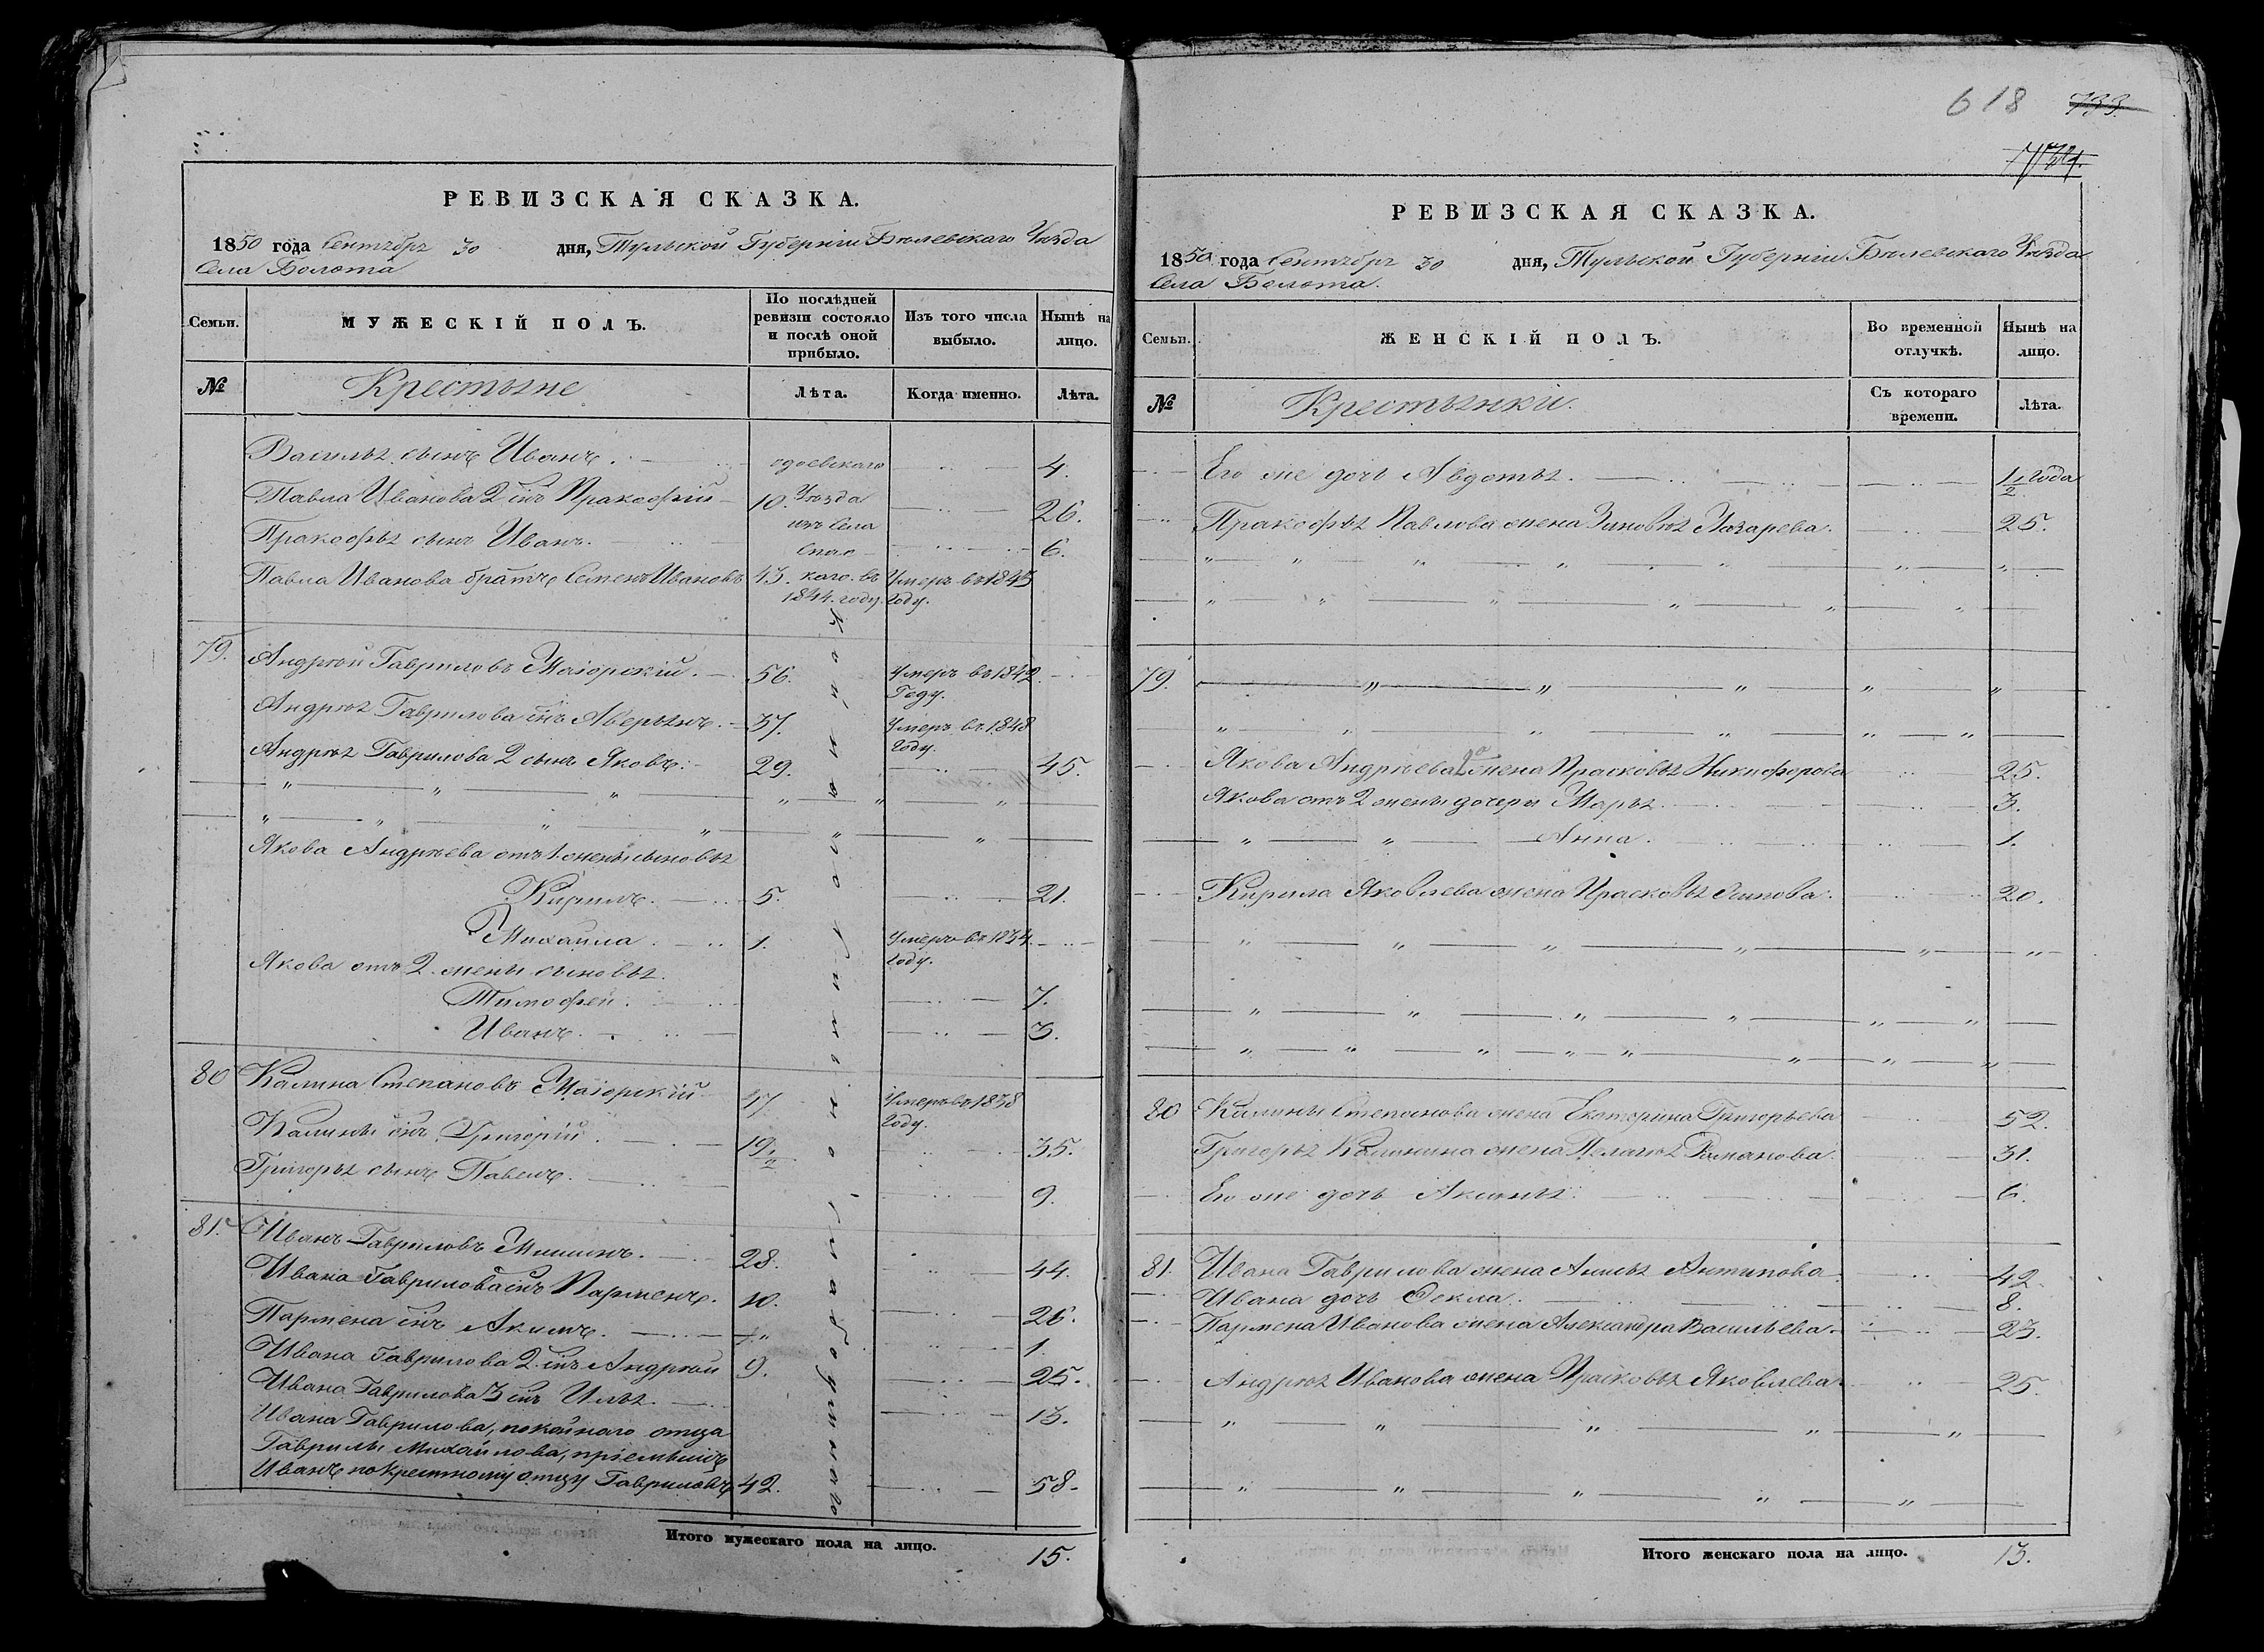 618 733.
734.
РЕВИЗСКАЯ СКАЗКА.
1850 года Сентября 30 дня, Тульской Губерніи Бѣлевскаго Уѣзда
Села Болота
Семьи.
МУЖЕСКІЙ ПОЛЪ.
По послѣдней ревизіи состояло и послѣ оной прибыло.
Изъ того числа выбыло.
Нынѣ на лицо.
№
Крестьяне
Лѣта.
Когда именно.
Лѣта.
Василья сынъ Иванъ. одоевскаго 4.
Павла Иванова 2 сынъ Пракофій 10. Уѣзда 26.
изъ Села
Пракофья сынъ Иванъ. Спас 6.
Павла Иванова братъ Семенъ Ивановъ 43. каго. въ Умеръ въ 1843
1844. году. Году.
79. Андрей Гавриловъ Маiорскiй. 56. Умеръ въ 1842
Году.
Андрея Гаврилова сынъ Аверьянъ. 37. Умеръ въ 1848
Году.
Андрея Гаврилова 2 сынъ Яковъ. 29. 45.
Якова Андреева отъ 1 жены сыновья
Кирилъ. 5. 21.
Михайла. 1. Умеръ въ 1834
Году.
Якова отъ 2 жены сыновья.
Тимофей. 7.
Иванъ. 3.
80 Калина Степановъ Маiорскiй 47. Умеръ въ 1838
Году.
Калины сынъ Григорій. 19. 35.
Григорья сынъ Павелъ. 9.
81. Иванъ Гавриловъ Мишинъ. 28. 44.
Ивана Гаврилова сынъ Парменъ. 10. 26.
Пармена сынъ Акимъ. 1.
Ивана Гаврилова 2 сынъ Андрей 9. 25.
Ивана Гаврилова 3 сынъ Илья. 13.
Ивана Гаврилова, покойнаго отца
Гаврилы Михайлова, прiемышъ
Иванъ по крестному отцу Гавриловъ 42. 58.
Итого мужескаго пола на лицо. 15.
РЕВИЗСКАЯ СКАЗКА.
1850 года Сентября 30 дня, Тульской Губерніи Бѣлевскаго Уѣзда
Села Болота.
Семьи.
ЖЕНСКІЙ ПОЛЪ.
Во временной отлучкѣ.
Нынѣ на лицо.
№
Крестьянки.
Съ котораго времени.
Лѣта.
Его же дочь Авдотья. 1 1/2 Года
Пракофья Павлова жена Зиновья Лазарева. 25.
79.
Якова Андреева 2а жена Прасковья Никифорова 25.
Якова отъ 2 жены дочери Марья. 3.
Анна. 1.
Кирила Яковлева жена Прасковья Осипова. 20.
80 Калины Степанова жена Екатерина Григорьева 52.
Григорья Калинина жена Пелагея Романова. 31.
Его же дочь Аксинья. 6.
81. Ивана Гаврилова жена Анисья Антипова. 42
Ивана дочь Фекла. 8.
Пармена Иванова жена Александра Васильева. 23.
Андрея Иванова жена Прасковья Яковлева. 25.
Итого женскаго пола на лицо. 13.